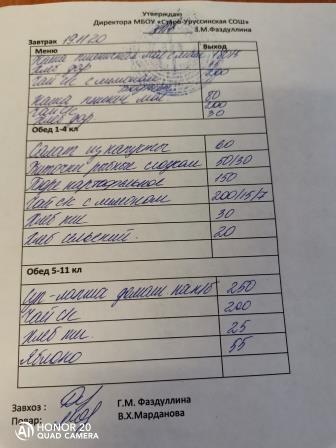 Утверждаю
Директора МБОУ «Старо-Уруссинская СОШ»
З.М.Фаздуллина
Завтрак 19.11.20
Меню Выход
Каша
200
Чай ск с лимоном
Каша пшен мол
Чай ск 200
30
Обед 1-4 кл
Салат из капусты 60
Биточки рыбные 50/30
Пюре картофельное 150
Чай ск с лимоном 200/15/7
Хлеб пш 30
Хлеб сельский. 20
Обед 5-11 кл
Суп-лапша домаш 250
Чай ск 200
Хлеб пш. 25
Яблоко 55
Завхоз : Г.М. Фаздуллина
Повар: В.Х.Марданова
HONOR 20
QUAD CAMERA